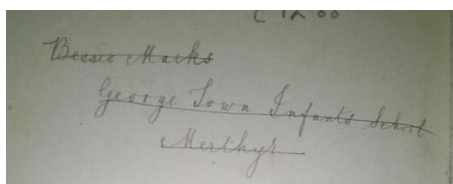 Bessie Marks
George Town Infants School
Merthyr